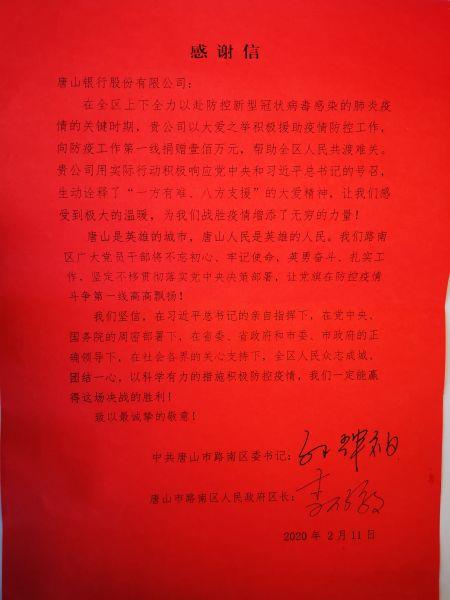 感谢信
唐山银行股份有限公司：
在全区上下全力以赴防控新型冠状病毒感染的肺炎疫
情的关键时期，贵公司以大爱之举积极援助疫情防控工作，
向防疫工作第一线捐赠壹佰万元，帮助全区人民共渡难关。
贵公司用实际行动积极响应党中央和习近平总书记的号召，
生动诠释了“一方有难、八方支援”的大爱精神，让我们感
受到极大的温暖，为我们战胜疫情增添了无穷的力量！
唐山是英雄的城市，唐山人民是英雄的人民。我们路南
区广大党员干部将不忘初心、牢记使命，英勇奋斗、扎实工
作，坚定不移贯彻落实党中央决策部署，让党旗在防控疫情
斗争第一线高高飘扬！
我们坚信，在习近平总书记的亲自指挥下，在党中央、
国务院的周密部署下，在省委、省政府和市委、市政府的正
确领导下，在社会各界的关心支持下，全区人民众志成城、
团结一心，以科学有力的措施积极防控疫情，我们一定能赢
得这场决战的胜利！
致以最诚挚的敬意！
中共唐山市路南区委书记：
唐山市路南区人民政府区长：
2020年2月11日